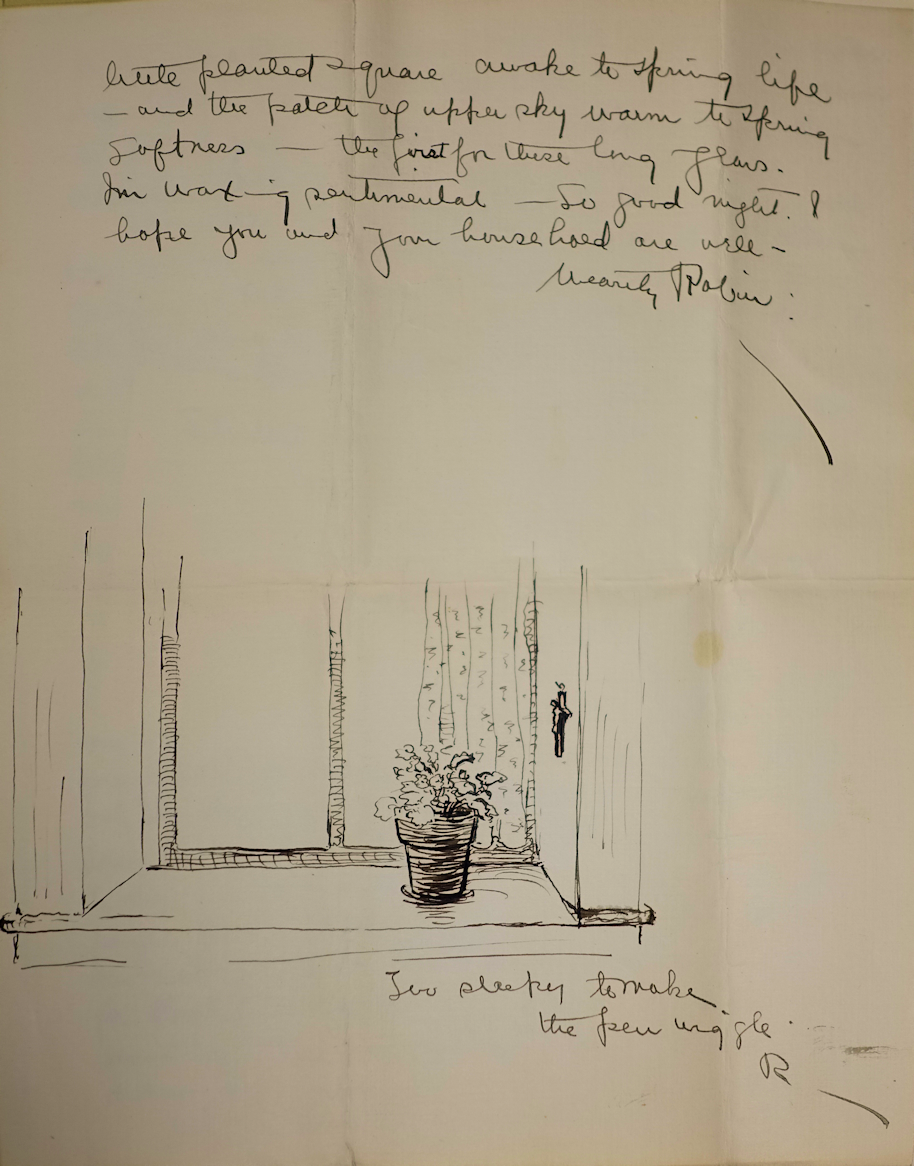 little planted square awake to spring life
— and the patch of upper sky warm to spring
softness — the first for these long years.
I'm waxing sentimental — So good night. I
hope you and your household are well —
Wearily Robin:
Too sleepy to make
the pen wiggle.
R